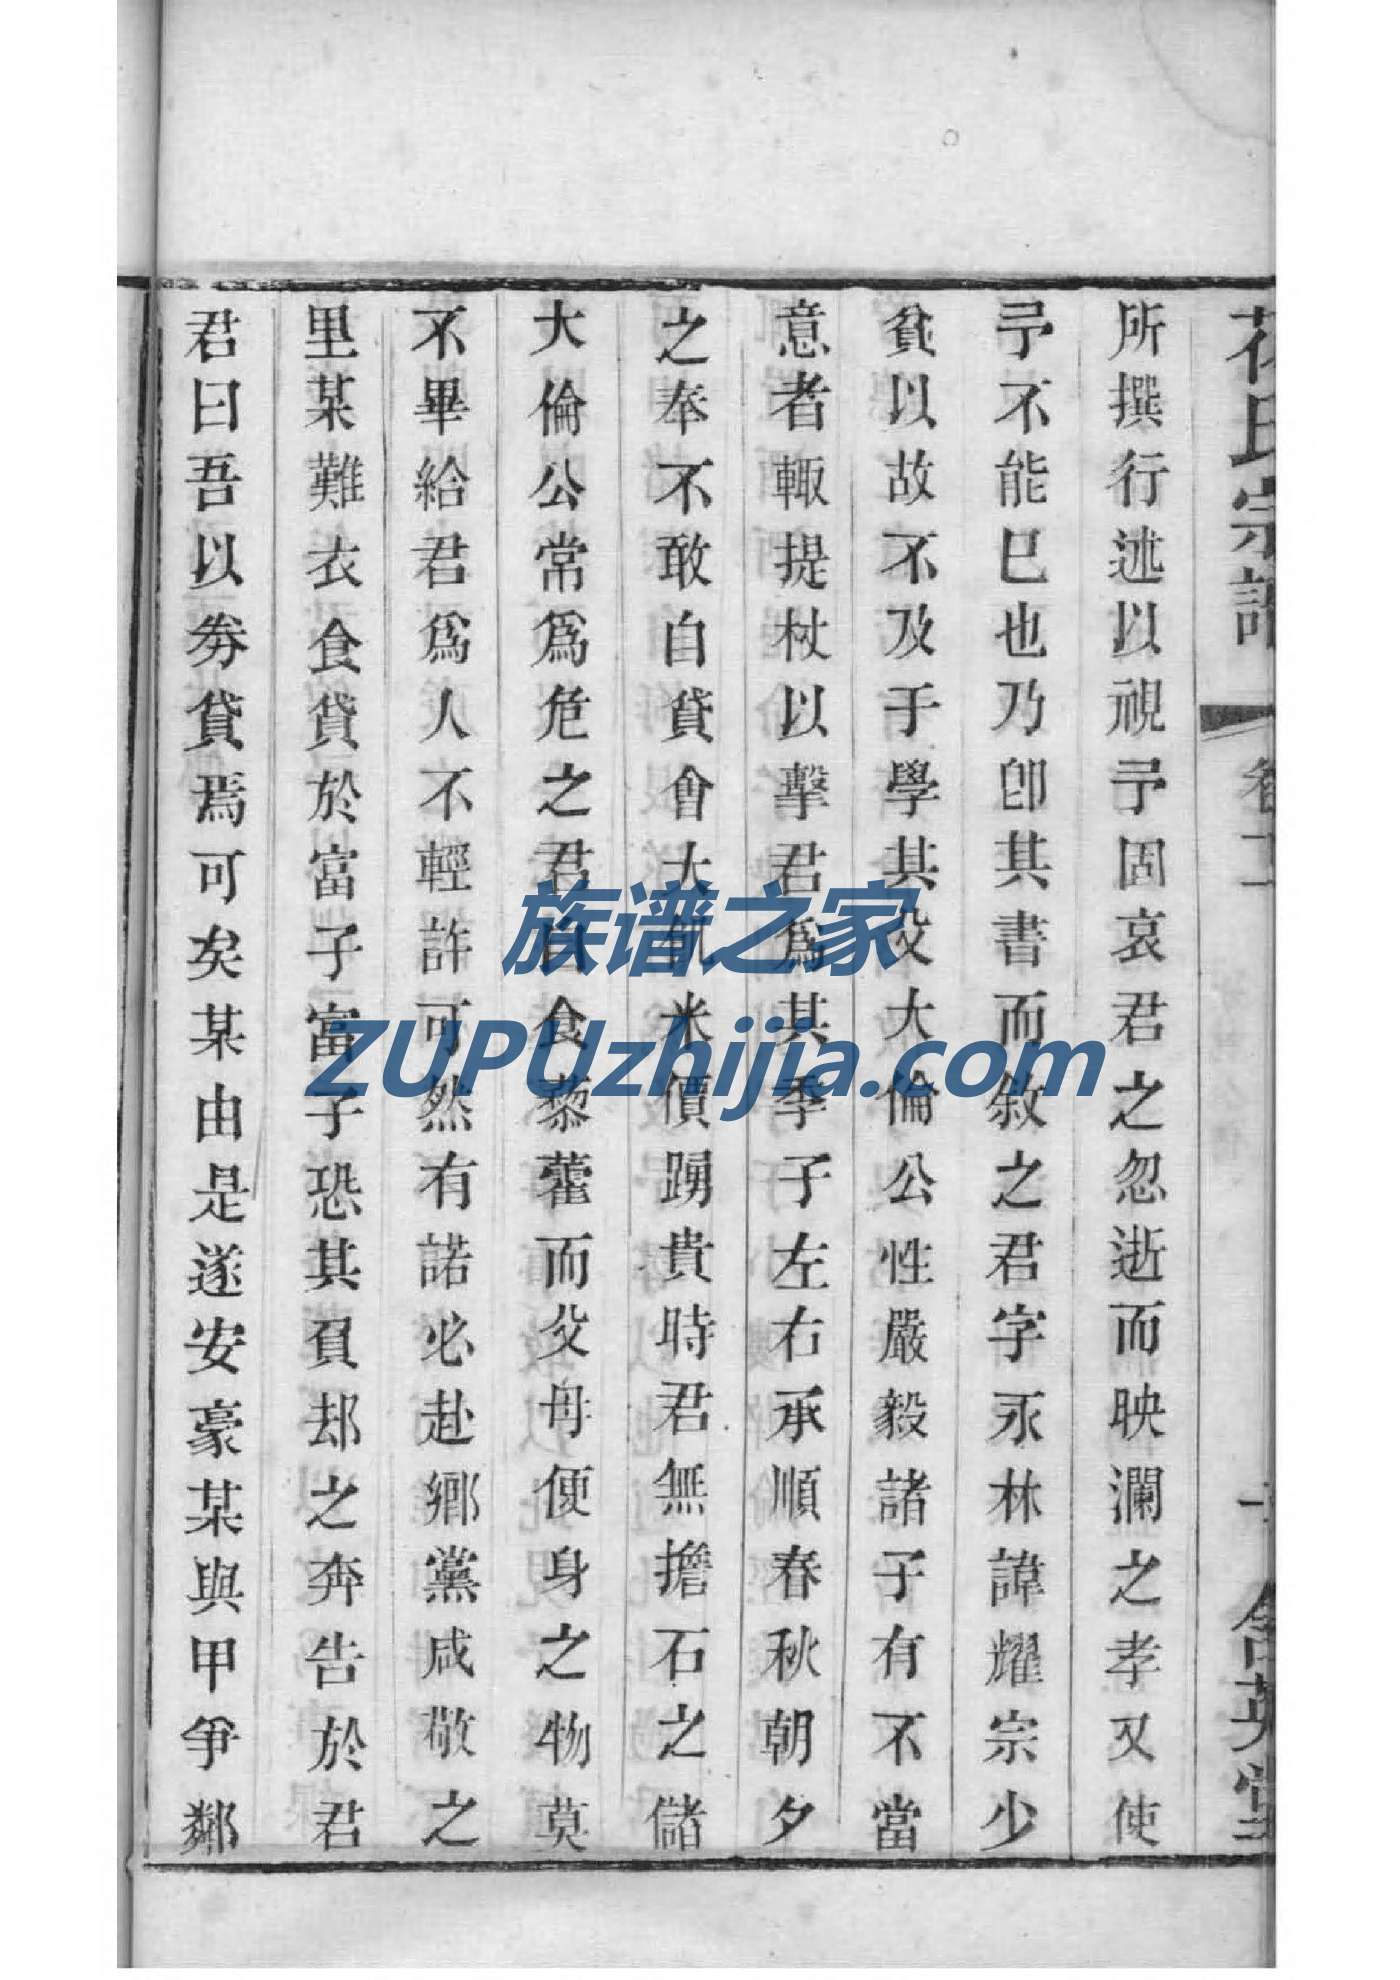 所撰行述以視予固哀君之忽逝而映瀾之孝又使
予不能已也乃卽其書而敘之君字永林諱耀宗少
貧以故不及于學其父大倫公性嚴毅諸子有不當
意者輙提杖以擊君爲其季子左右承順春秋朝夕
之奉不敢自貸會大飢米價踴貴時君無擔石之儲
大倫公常爲危之君自食藜藿而父母便身之物莫
不畢給君爲人不輕許可然有諾必赴鄉黨咸敬之
里某難衣食貸於富子富子恐其負却之奔告於君
君曰吾以劵貸焉可矣某由是遂安豪某與甲爭鄰
氏宗譜
卷十一
含英堂
族谱之家
ZUPUzhijia.com